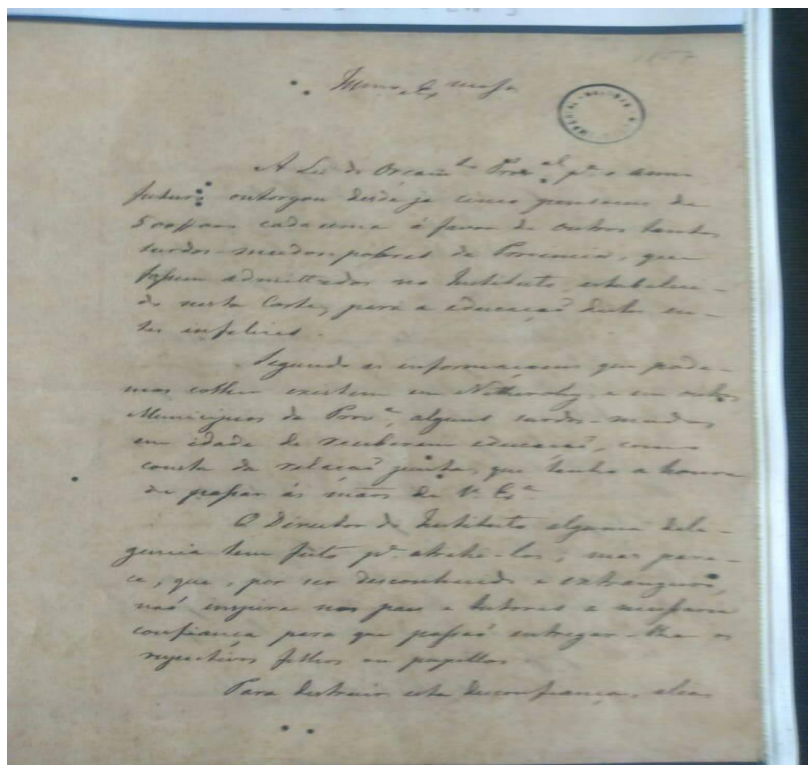 A Lei de Orcam.to Prov.al p.a o anno
futuro outorgou desde já cinco pensoens de
500$000 cada uma á favor de outros tantos
surdos-mudos pobres da Provincia, que
fossem admittidos no Instituto, estabeleci-
do nesta Corte, para a educaçaõ destes en-
tes infelices.
Segundo as informaçoens que pude-
mos colher existem em Nitherohy, e em outros
Municipios da Prov.a, alguns surdos-mudos,
em idade de receberem educaçaõ, como
consta da relaçaõ junta, que tenho a honra
de passar ás mãos de V. Ex.a
O Director do Instituto alguma dili-
gencia tem feito p.a attrahi-los; mas pare-
ce, que, por ser desconhecido e extrangeiro,
naõ inspira nos pais e tutores a necessaria
confiança para que possaõ entregar-lhe os
respectivos filhos ou pupillos.
Para destruir esta desconfiança, aliás